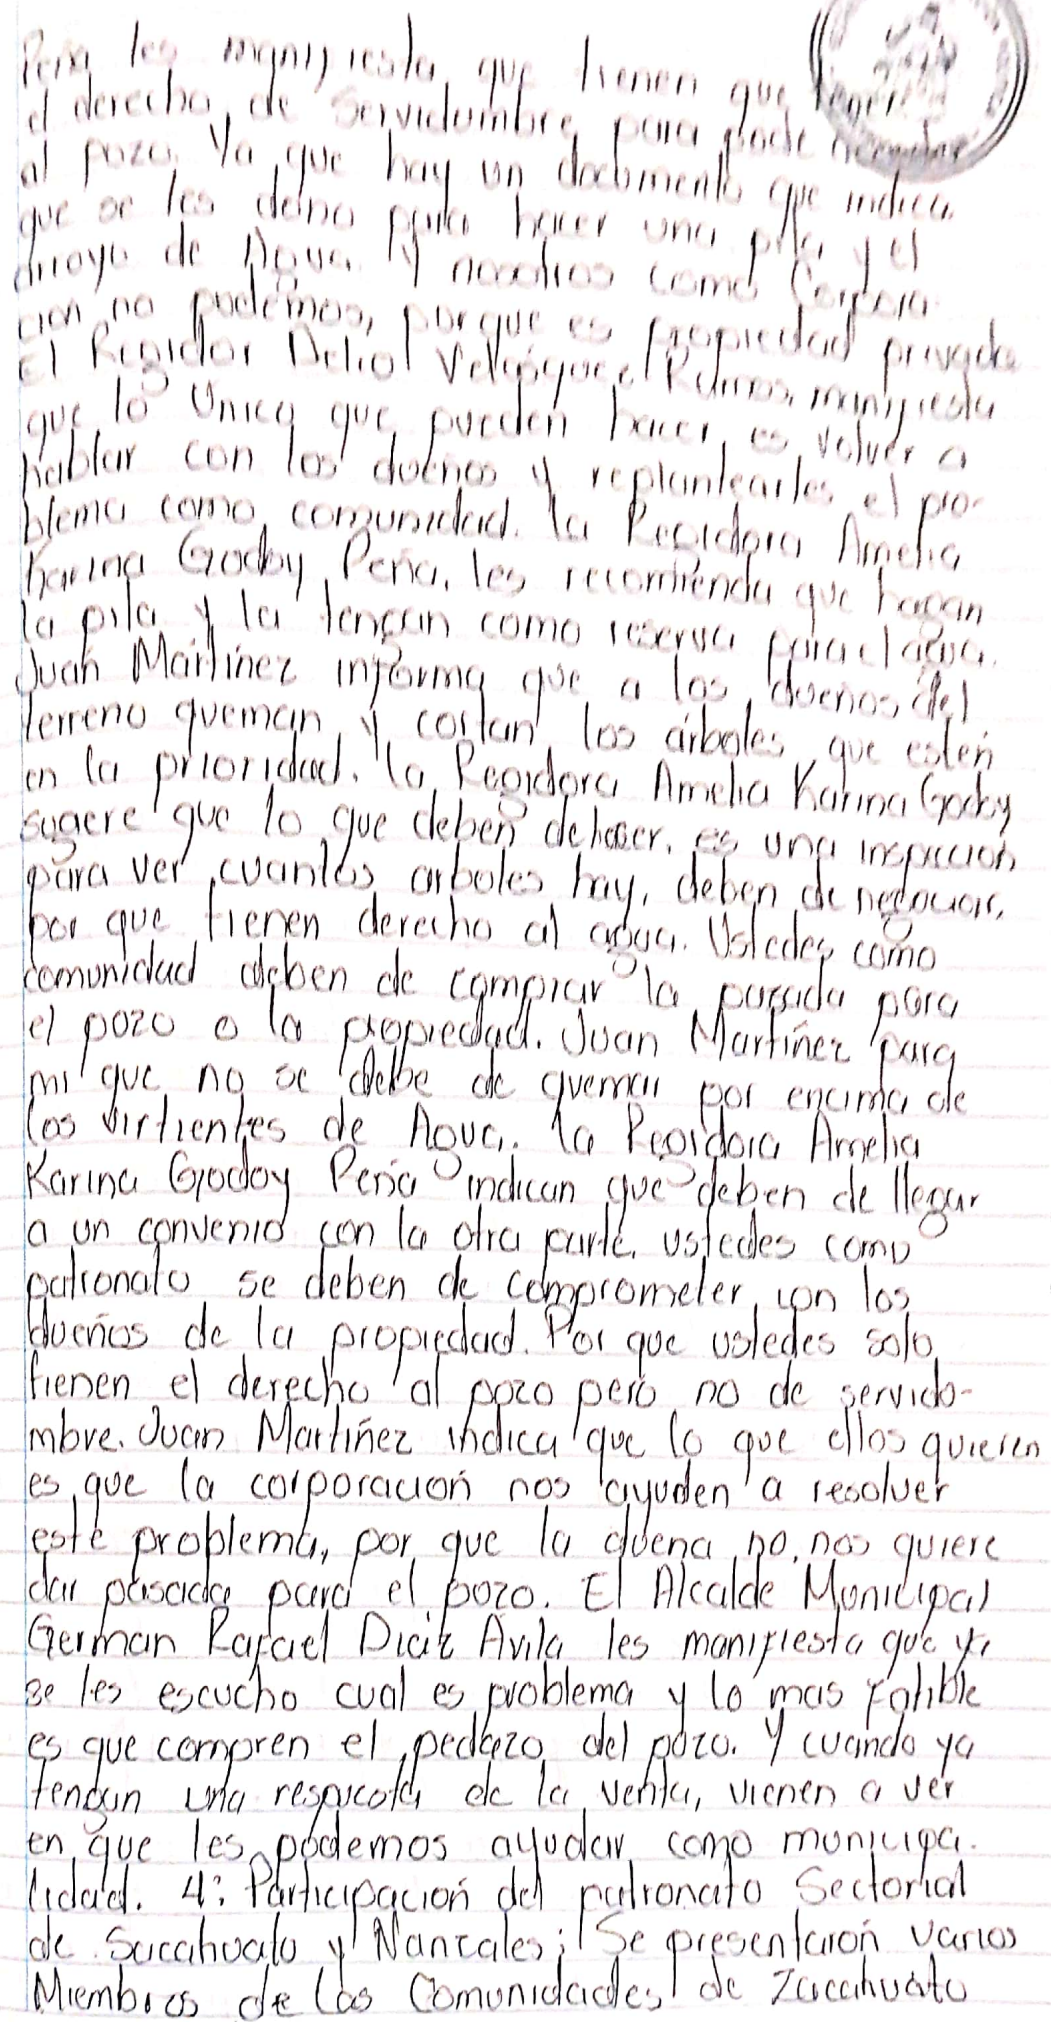 Peña les manifiesta que tienen que tener
el derecho de Servidumbre para pode accesar
al pozo. Ya que hay un documento que indica
que se les deino para hacer una pila y el
arroyo de Agua. Y nosotros como Corpora-
cion no podemos, porque es propiedad privada
El Regidor Delio Velásquez Ramos, manifiesta
que lo Unico que pueden hacer, es volver a
hablar con los dueños y replantearles el pro-
blema como comunidad. La Regidora Amelia
Karina Godoy Peña, les recomienda que hagan
la pila y la tengan como reserva para el agua.
Juan Martiñez informa que a los dueños del
terreno queman y cortan los árboles, que esteñ
en la prioridad. La Regidora Amelia Karina Godoy
sugere que lo que debeñ de hacer, es una inspeccion
para ver cuantos arboles hay, deben de negociar,
por que tienen derecho al agua. Ustedes como
comunidad deben de comprar la pasada para
el pozo o la propiedad. Juan Martiñez para
mi que no se debe de quemar por encima de
los virtientes de Agua. La Regidora Amelia
Karina Godoy Peña indican que deben de llegar
a un convenio con la otra parte, ustedes como
patronato se deben de comprometer con los
dueños de la propiedad. Por que ustedes solo
tienen el derecho al pozo pero no de servido-
mbre. Juan Martiñez indica que lo que ellos quieren
es que la corporacioñ nos ayuden a resolver
este problema, por que la duena no, nos quiere
dar pasada para el pozo. El Alcalde Municipal
German Rafael Diaz Avila les manifiesta que ya
se les escucho cual es problema y lo mas fatible
es que compren el pedazo del pozo. Y cuando ya
tengan una respuesta de la venta, vienen a ver
en que les podemos ayudar como municipa-
lidad. 4: Participacioñ del patronato Sectorial
de Sacahuato y Nanzales; Se presentaroñ varios
Miembros de las Comunidades de Zacahuato